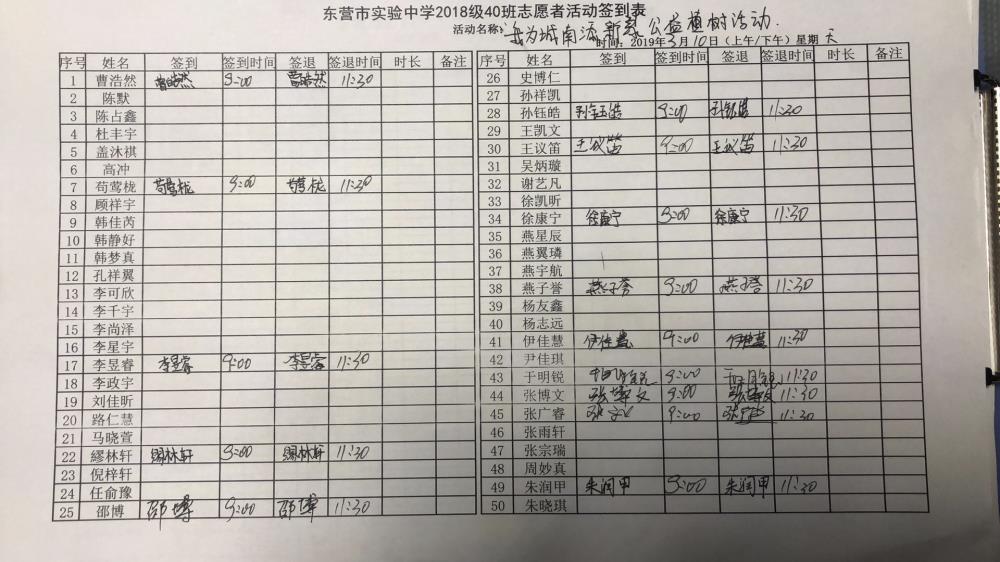 东营市实验中学2018级40班志愿者活动签到表
活动名称：我为城南添新装公益植树活动.
时间：2019年3月10日（上午/下午）星期天
序号 姓名 签到 签到时间 签退 签退时间 时长 备注
1 曹浩然 曹浩然 9:00 曹浩然 11:30
2 陈默
3 陈占鑫
4 杜丰宇
5 盖沐祺
6 高冲
7 荀莺栊 荀莺栊 9:00 莺栊 11:30
8 顾祥宇
9 韩佳芮
10 韩静好
11 韩梦真
12 孔祥翼
13 李可欣
14 李千宇
15 李尚泽
16 李星宇
17 李昱睿 李昱睿 9:00 李昱睿 11:30
18 李政宇
19 刘佳昕
20 路仁慧
21 马晓萱
22 繆林轩 缪林轩 9:00 缪林轩 11:30
23 倪梓轩
24 任俞豫
25 邵博 邵博 9:00 邵博 11:30
序号 姓名 签到 签到时间 签退 签退时间 时长 备注
26 史博仁
27 孙祥凯
28 孙钰皓 孙钰皓 9:00 孙钰皓 11:30
29 王凯文
30 王议笛 王议笛 9:00 王议笛 11:30
31 吴炳璇
32 谢艺凡
33 徐凯昕
34 徐康宁 徐康宁 9:00 徐康宁 11:30
35 燕星辰
36 燕翼璘
37 燕宇航
38 燕子誉 燕子誉 9:00 燕子誉 11:30
39 杨友鑫
40 杨志远
41 伊佳慧 伊佳慧 9:00 伊佳慧 11:30
42 尹佳琪
43 于明锐 于明锐 9:00 于明锐 11:30
44 张博文 张博文 9:00 张博文 11:30
45 张广睿 张 9:00 张 11:30
46 张雨轩
47 张宗瑞
48 周妙真
49 朱润甲 朱润甲 9:00 朱润甲 11:30
50 朱晓琪